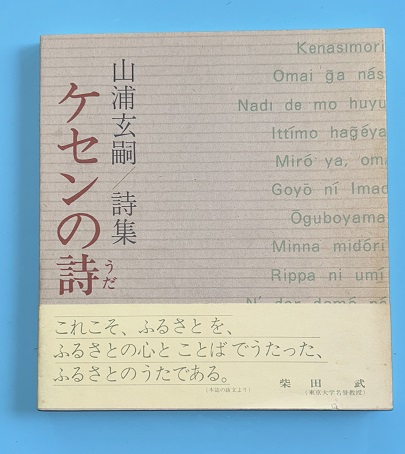 山浦玄嗣／詩集
ケセンの詩
うだ
Kenasímori
Omai g̃a nás
Nadı de mo huyu
Ittímo hag̃éya
Miró ya, oma
Goyō ní Imad
Ōguboyama
Minna midóri
Rippa ni umí
これこそ、ふるさとを、
ふるさとの心とことばでうたった、
ふるさとのうたである。
（本誌の跋文より）
柴田 武
（東京大学名誉教授）